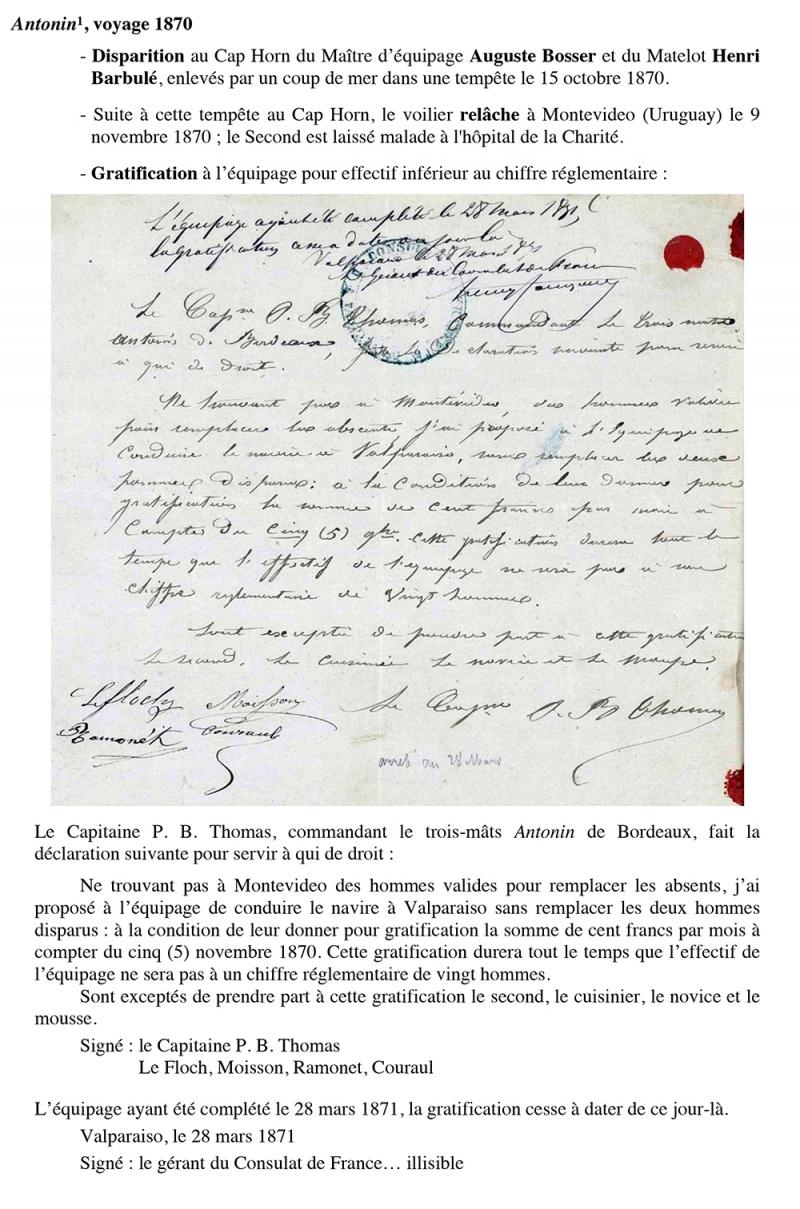 Antonin¹, voyage 1870
- Disparition au Cap Horn du Maître d’équipage Auguste Bosser et du Matelot Henri
Barbulé, enlevés par un coup de mer dans une tempête le 15 octobre 1870.
- Suite à cette tempête au Cap Horn, le voilier relâche à Montevideo (Uruguay) le 9
novembre 1870 ; le Second est laissé malade à l'hôpital de la Charité.
- Gratification à l’équipage pour effectif inférieur au chiffre réglementaire :
L'équipage ayant été complété le 28 Mars 1871,
la gratification cesse à dater de ce jour là
Valparaiso le 28 mars 1871
Le Gérant du Consulat de France
Le Capne P. B. Thomas, Commandant le trois mats
Antonin de Bordeaux, fait la Declaration suivante pour servir
à qui de droit.
Ne trouvant pas à Montévidéo, des hommes valides
pour remplacer les absents, j'ai proposé à l'Equipage de
Conduire le navire à Valparaiso, sans remplacer les deux
hommes disparus: à la Condition de leur donner pour
gratification la somme de Cent francs par mois à
Compter du Cinq (5) 9bre. Cette gratification durera tout le
temps que l'effectif de l'équipage ne sera pas à un
chiffre reglementaire de Vingt hommes.
Sont exceptés de prendre part à cette gratification
le second, le cuisinier le novice et le mousse.
Le Floch Moisson Le Capne P. B. Thomas
Ramonét Couraul
arrêté au 28 Mars
Le Capitaine P. B. Thomas, commandant le trois-mâts Antonin de Bordeaux, fait la
déclaration suivante pour servir à qui de droit :
Ne trouvant pas à Montevideo des hommes valides pour remplacer les absents, j’ai
proposé à l’équipage de conduire le navire à Valparaiso sans remplacer les deux hommes
disparus : à la condition de leur donner pour gratification la somme de cent francs par mois à
compter du cinq (5) novembre 1870. Cette gratification durera tout le temps que l’effectif de
l’équipage ne sera pas à un chiffre réglementaire de vingt hommes.
Sont exceptés de prendre part à cette gratification le second, le cuisinier, le novice et le
mousse.
Signé : le Capitaine P. B. Thomas
Le Floch, Moisson, Ramonet, Couraul
L’équipage ayant été complété le 28 mars 1871, la gratification cesse à dater de ce jour-là.
Valparaiso, le 28 mars 1871
Signé : le gérant du Consulat de France… illisible